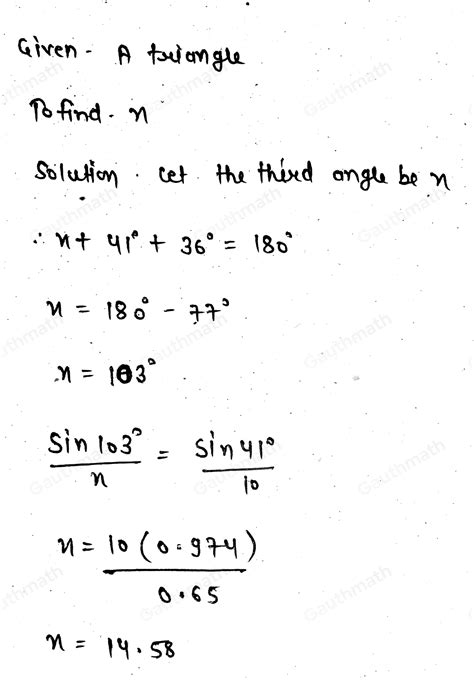 Given - A triangle
To find - x
Solution. Let the third angle be x
∴ x + 41° + 36° = 180°
x = 180° - 77°
x = 103°
Sin 103° / x = Sin 41° / 10
x = 10 (0.974) / 0.65
x = 14.58
Gauthmath